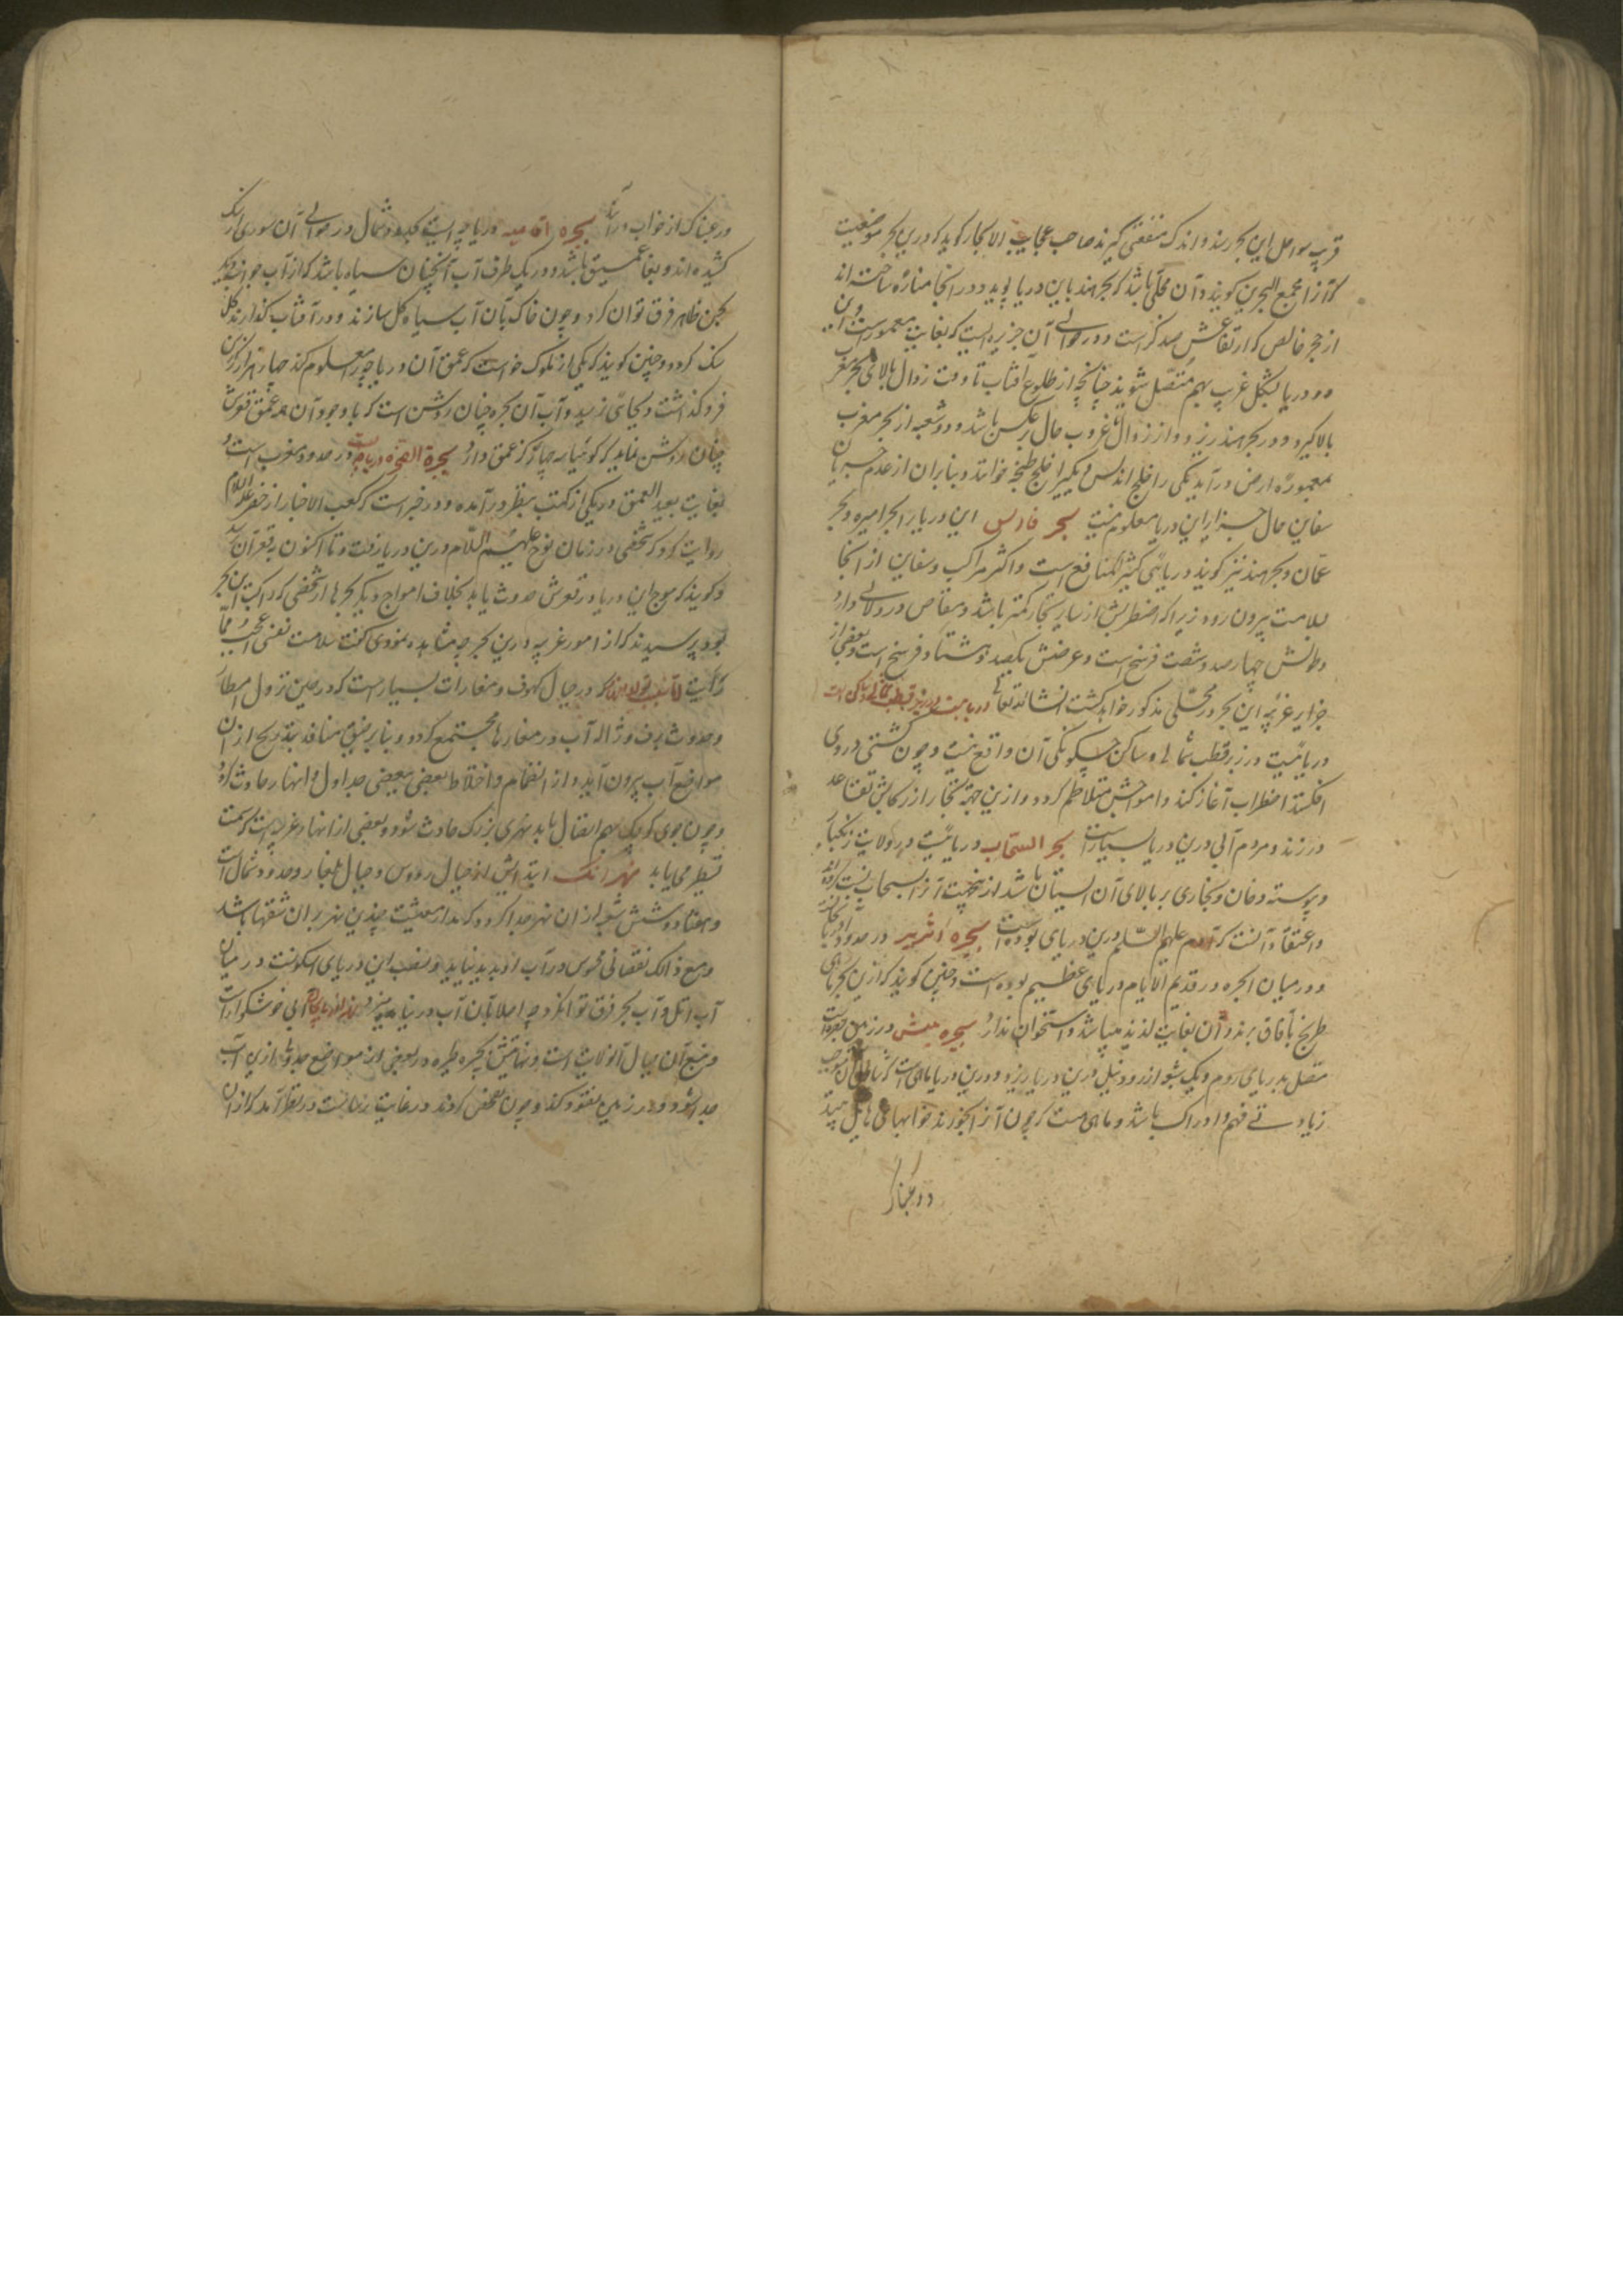 قریب سواحل این بحر رسند و اندک منفعتی گیرند صاحب عجایب الابحار گوید که درین بحر موضعیست
که آنرا مجمع البحرین گویند و آن محلی باشد که بحر هند باین دریا پیوندد و در انجا مناره ساخته اند
از حجر خالص که ارتفاعش صد گز است و در حوالی آن جزیره ایست که بغایت معمور است و این
دو دریا بشکل غریب بهم متصل شوند چنانچه از طلوع آفتاب تا وقت زوال بالای بحر مغرب
بالا گیرد و در بحر هند ریزد و از زوال تا غروب حال برعکس باشد و دو شعبه از بحر مغرب
بمعموره ارض درآید یکی را خلیج اندلس و دیگیرا خلیج طنجه خوانند و بنابران از عدم جریان
سفاین حال جزایر این دریا معلوم نیست بحر فارس این دریا را بحر اخضر و بحر
عمان و بحر هند نیز گویند دریائی کثیر المنافع است و اکثر مراکب و سفاین از انجا
بسلامت بیرون رود زیرا که اضطرابش از سایر بحار کمتر باشد و مغاص در و لآلی دارد
و طولش چهارصد و شصت فرسخ است و عرضش یکصد و هشتاد فرسخ است و بعضی از
جزایر غریبه این بحر در محلی مذکور خواهد گشت انشاالله تعالی
دریائیست در زیر قطب شمالی و ساکن چگونگی آن واقع نیست و چون کشتی در وی
افکنند اضطراب آغاز کند و امواجش متلاطم گردد و ازین جهة تجار از رکابش تقاعد
ورزند و مردم آبی درین دریا بسیار است بحر السحاب دریائیست در ولایت زنگبار
و پیوسته دخان و بخاری بر بالای آن ایستان باشد ازینجهت آنرا بسحاب نسبت کرده اند
و اعتقاد آنست که آدم علیه السلام درین دریا بوده است بحیره در حدود
و در میان البحره در قدیم الایام دریای عظیم بوده است و چنین گویند که ازین بحر ماهی
طریخ بآفاق برند و آن بغایت لذیذ میباشد و استخوان ندارد بحیره تنیس در زمین مصر است
متصل بدریای روم و یک شعبه از رود نیل درین دریا ریزد و درین دریا ماهی است که موجب
زیادتی فهم و ادراک باشد و ماهی هست که چون آنرا بخورند خوابهای هایل بیند
و رعبناک
و رعبناک از خواب درآید بحیره دریاچه ایست بحدود شمال در حوالی آن سوری از سنگ
کشیده اند و بغایت عمیق باشد و در یک طرف آب آنچنان سیاه باشد که از آب جوانب دیگر
بحس ظاهر فرق توان کرد و چون خاک بآن آب سیاه گل سازند و در آفتاب گذارند گل
سنگ گردد و چنین گویند که یکی از ملوک خواست که عمق آن دریاچه را معلوم کند چهار هزار گز رسن
فرو گذاشت و بجائی نرسید و آب آن بحیره چنان روشن است که با وجود آن همه عمق قعرش
چنان روشن نماید که گوئیا سه چهار گز عمق دارد بحیرة در حدود مغرب است
بغایت بعید العمق و در یکی از کتب بنظر درآمده و در خبر است که کعب الاخبار از خضر علیه السلام
روایت کرد که شخصی در زمان نوح علیهم السلام درین دریا رفت و تا اکنون بقعر آن نرسید
و گویند که موج این دریا در قعرش حدوث یابد بخلاف امواج دیگر بحرها از شخصی که راکب این بحر
بود پرسیدند که از امور غریبه درین بحر چه مشاهده نمودی گفت سلامت نفسی اعجب مما
رأیت که در جبال کهوف و مغارات بسیار است که در حین نزول امطار
و حدوث برف و ژاله آب در مغارها مجتمع گردد و بنا بر ضیق منافذ بتدریج از آن
مواضع آب بیرون آید و از انضمام و اختلاط بعضی ببعضی جداول و انهار حادث گردد
و چون جوی کوچک بهم اتصال یابد نهری بزرگ حادث شود و بعضی از انهار غریبه است که سمت
تسطیر می یابد نهر اتل ابتدایش از جبال روس و جبال بلغار و حدود شمال است
و هفتاد و شش شعبه از ان نهر جدا گردد که مدار معیشت چندین نهر بر ان شقها باشد
و مع ذلک نقصانی محسوس در آب او پدید نیاید و منصب این دریای اسکونست در میان
آب اتل و آب بحر فرق توان کرد چه اصلا بآن آب دریا نیامیزد آبی خوشگوار است
و منبع آن جبال آنولایت است و نهایتش ببحیره طبریه در بعضی از مواضع جدولی ازین آب
جدا شود و در زمین نفوذ کند و چون تفحص کردند در غایت زمانیست در نظر آمد که از ان